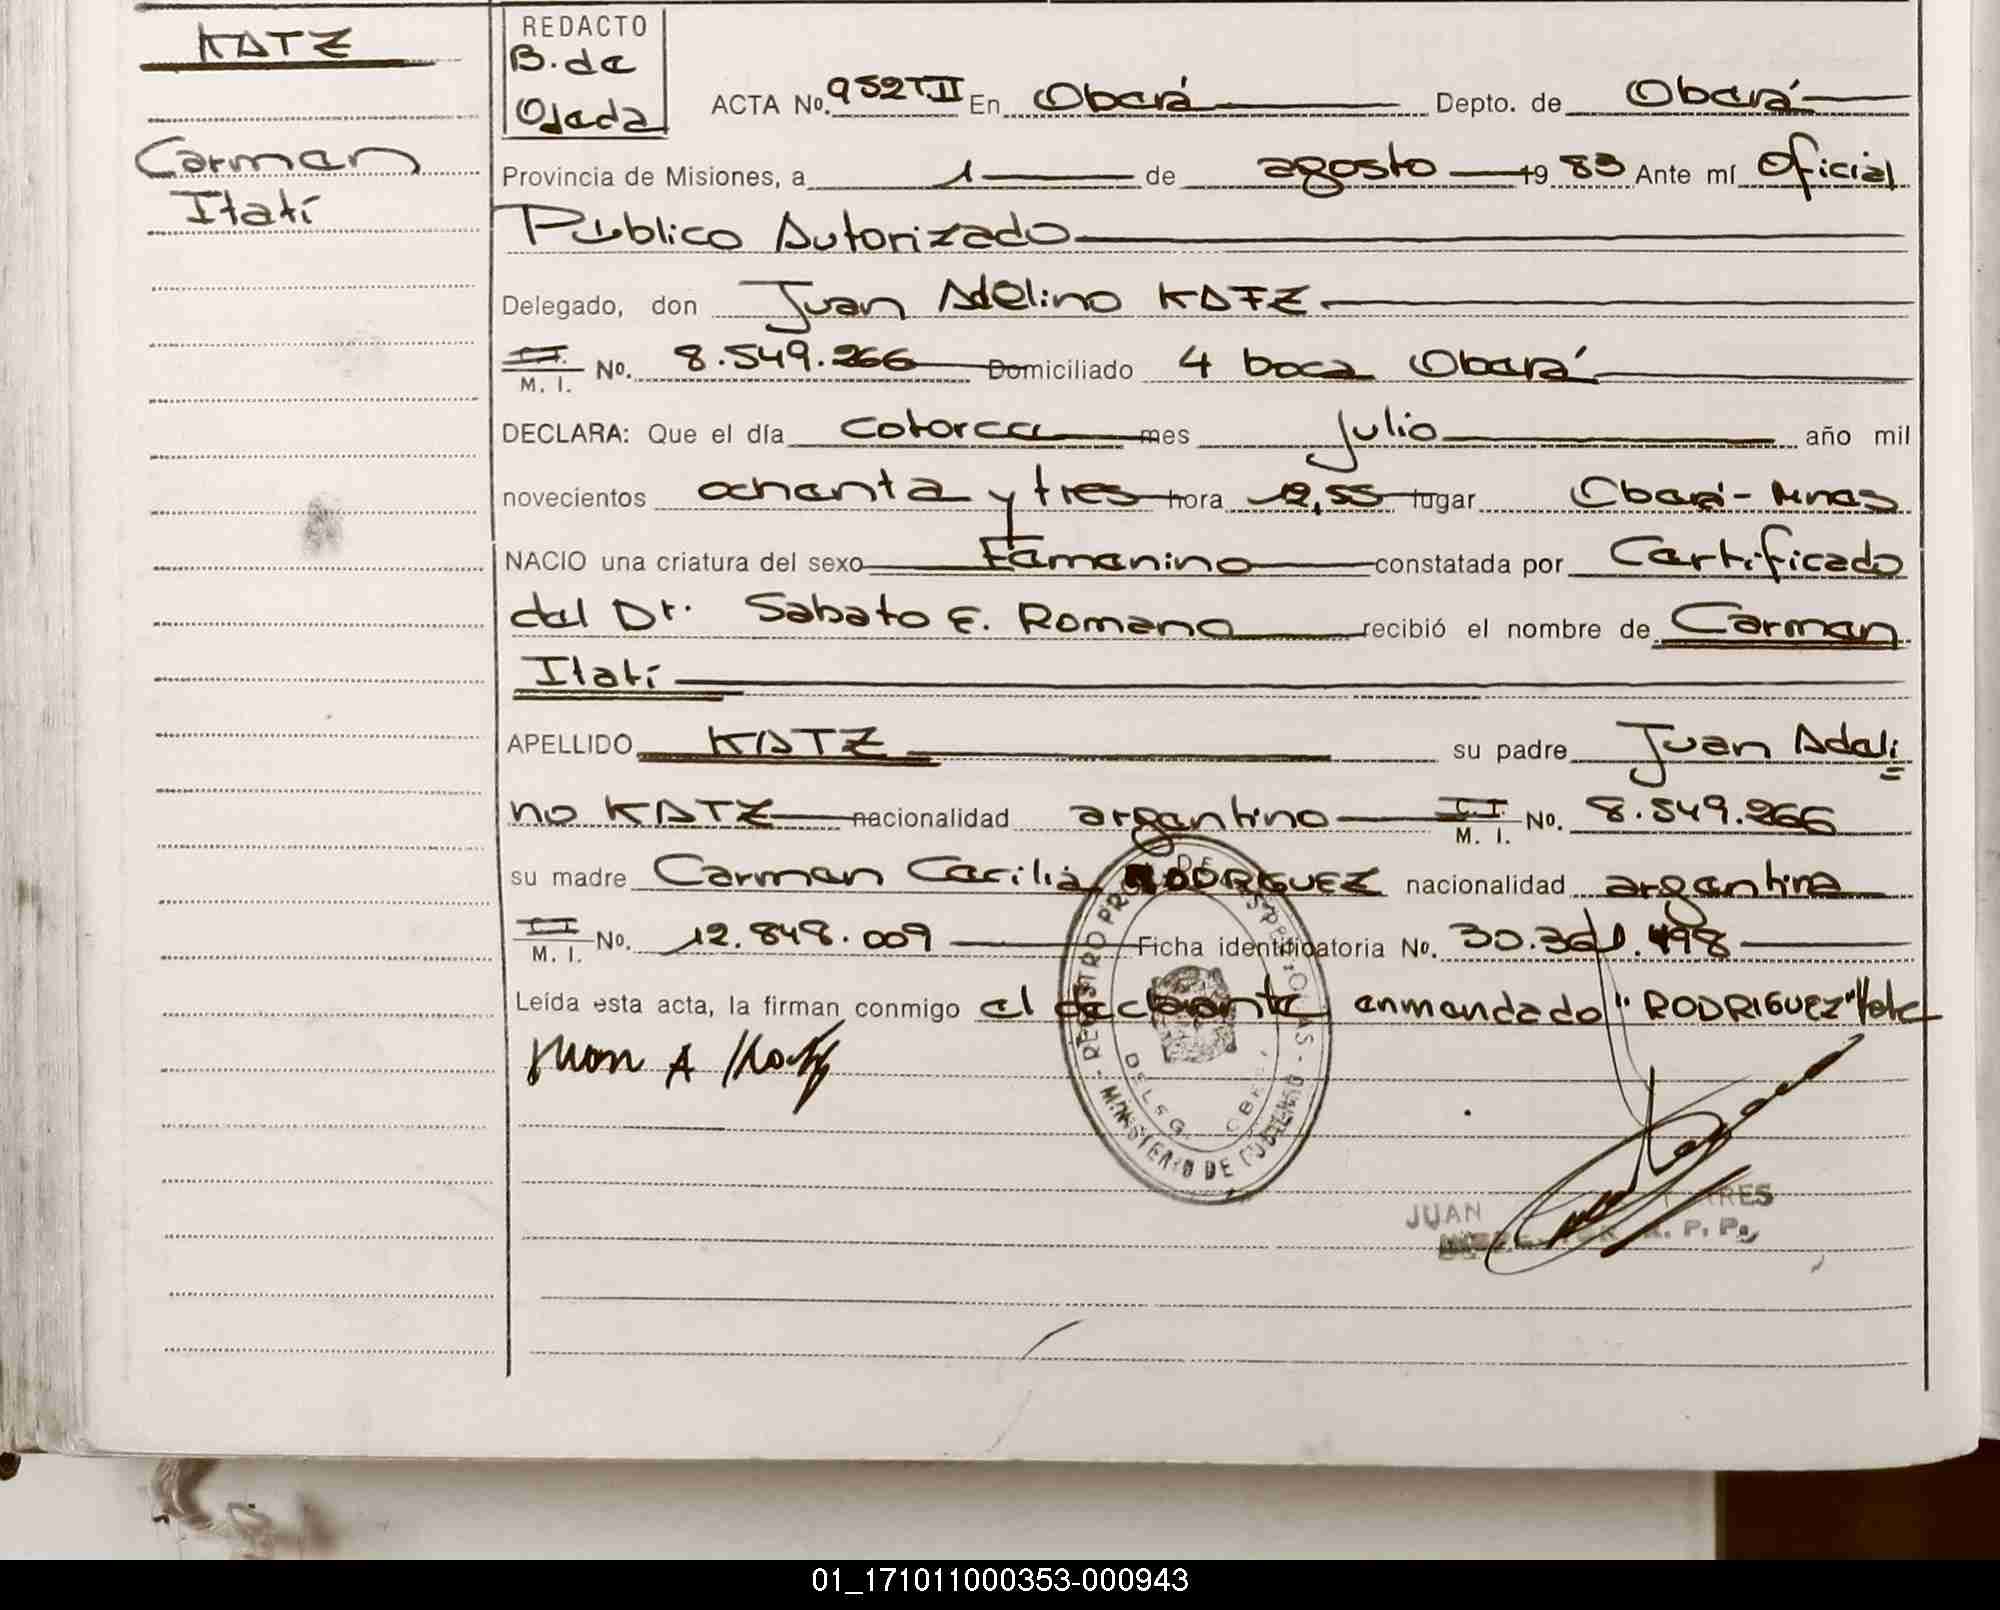 KATZ
Carmen
Itatí
REDACTO
B. de
Ojeda
ACTA No. 952 T.II En Oberá Depto. de Oberá
Provincia de Misiones, a 1 de agosto 19 83 Ante mí Oficial
Público Autorizado
Delegado, don Juan Adelino KATZ
C. I. M. I. No. 8.549.266 Domiciliado 4 boca Oberá
DECLARA: Que el día catorce mes julio año mil
novecientos ochenta y tres hora 12,55 lugar Oberá - Mnes
NACIO una criatura del sexo Femenino constatada por Certificado
del Dr. Sabato E. Romano recibió el nombre de Carmen
Itatí
APELLIDO KATZ su padre Juan Adeli
no KATZ nacionalidad argentino C. I. M. I. No. 8.549.266
su madre Carmen Cecilia RODRIGUEZ nacionalidad argentina
C. I. M. I. No. 12.848.009 Ficha identificatoria No. 30.361.498
Leída esta acta, la firman conmigo el declarante enmendado "RODRIGUEZ" Vale
Juan A Katz
REGISTRO PROV. DE LAS PERSONAS - MINISTERIO DE GOBIERNO
DELEG. OBERÁ
JUAN
R. P. P.
01_171011000353-000943